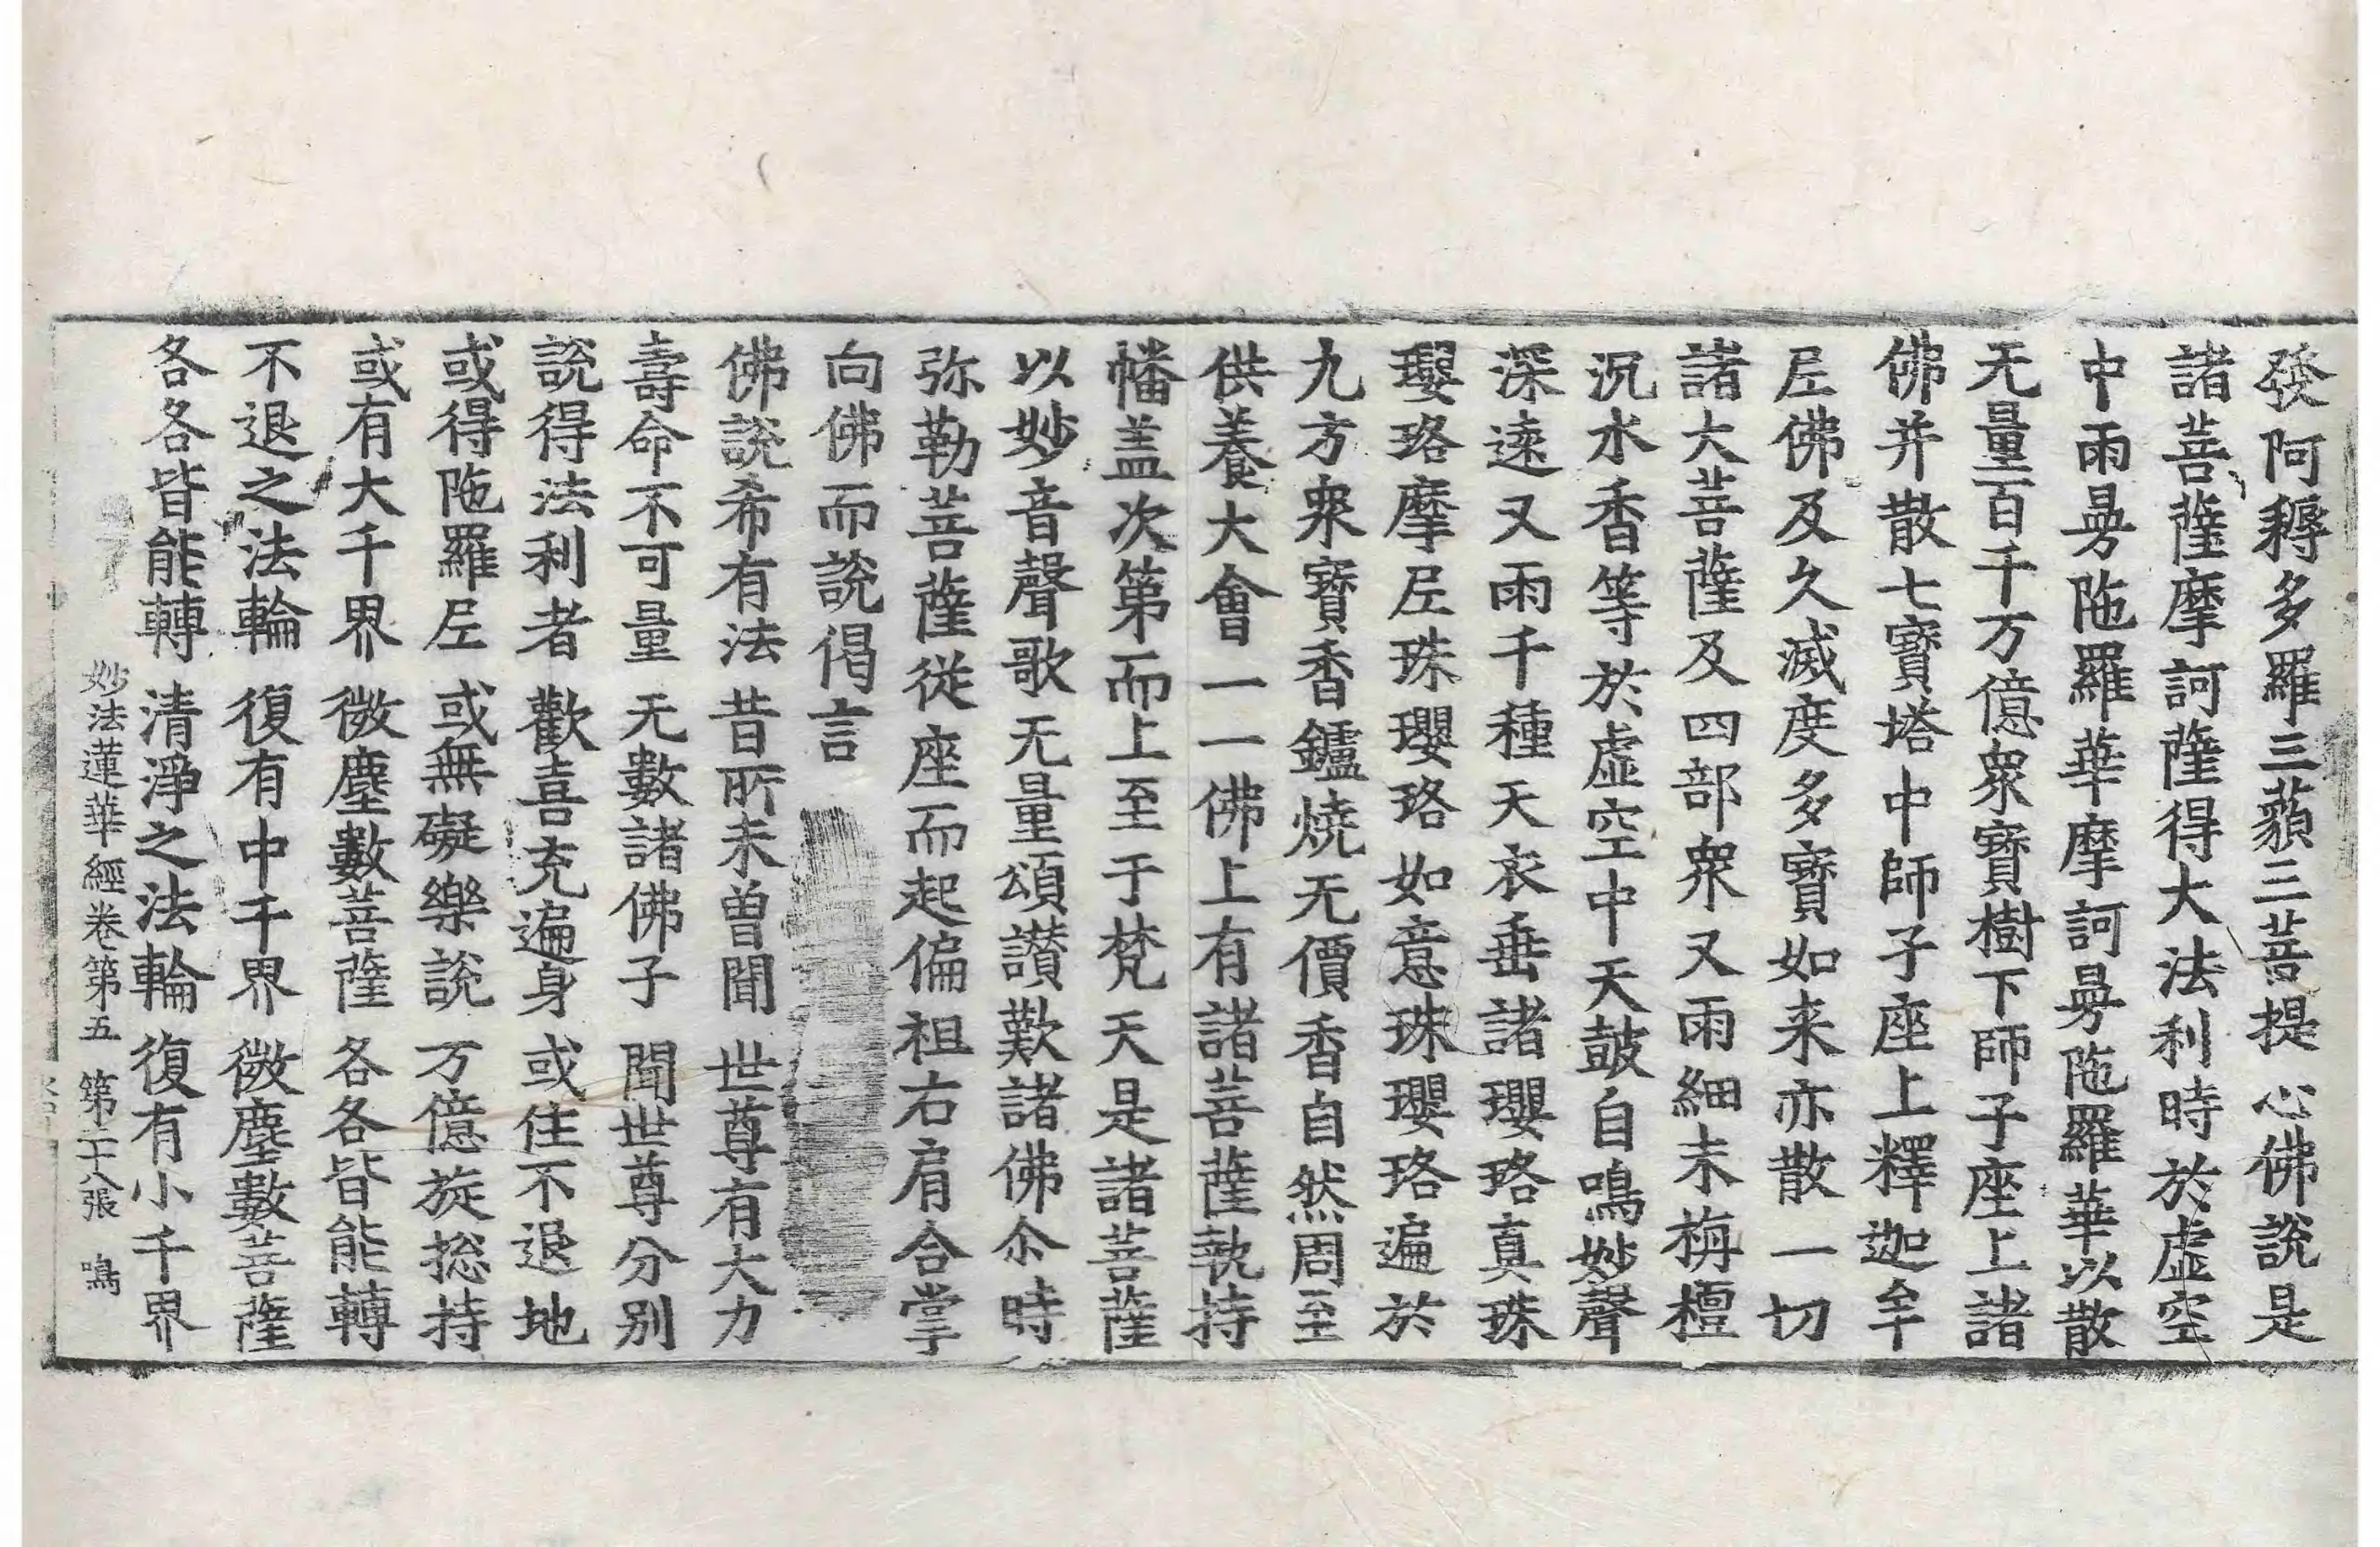 發阿耨多羅三藐三菩提心佛說是
諸菩薩摩訶薩得大法利時於虛空
中雨曼陁羅華摩訶曼陁羅華以散
无量百千万億衆寶樹下師子座上諸
佛并散七寶塔中師子座上釋迦牟
尼佛及久滅度多寶如来亦散一切
諸大菩薩及四部衆又雨細末栴檀
沉水香等於虛空中天鼓自鳴妙聲
深遠又雨千種天衣垂諸瓔珞真珠
瓔珞摩尼珠瓔珞如意珠瓔珞遍於
九方衆寶香鑪燒无價香自然周至
供養大會一一佛上有諸菩薩執持
幡盖次第而上至于梵天是諸菩薩
以妙音聲歌无量頌讃歎諸佛尒時
弥勒菩薩從座而起偏袒右肩合掌
向佛而說偈言
佛說希有法 昔所未曾聞 世尊有大力
壽命不可量 无數諸佛子 聞世尊分別
說得法利者 歡喜充遍身 或住不退地
或得陁羅尼 或無礙樂說 万億旋揔持
或有大千界 微塵數菩薩 各各皆能轉
不退之法輪 復有中千界 微塵數菩薩
各各皆能轉 清淨之法輪 復有小千界
妙法蓮華經卷第五 第二十八張 鳴